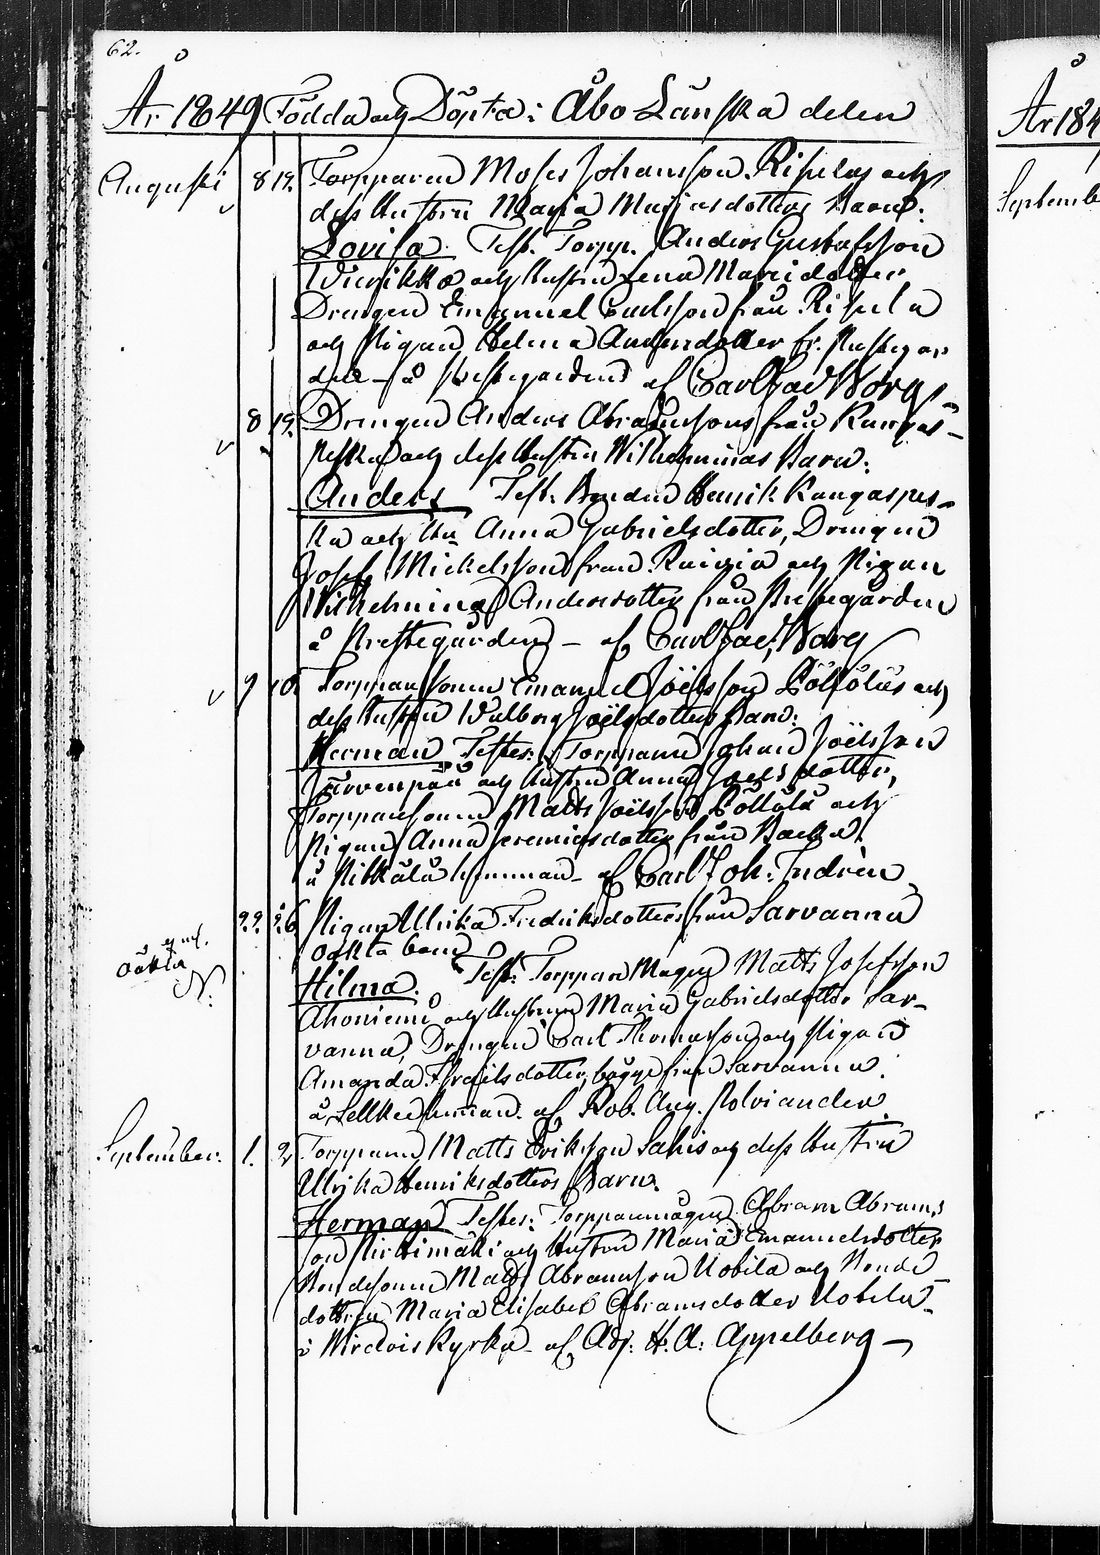 62.
År 1849 Födda och Döpta i Åbo Länska delen
Augusti 8 19. Torpparen Moses Johansson Risulas och
dess Hustru Maria dotters Barn:
Lovisa. Test. Torpp. Anders Gustafsson
och Hustru Lena dotter
Drengen Emanuel Carlsson från Risula
och Pigan Helena dotter fr.
å Prestegården af Carl Jac. Borg
8 19. Drengen Anders Abrahamsons från Kangas-
peska och dess Hustru Wilhelminas Barn:
Anders Test: Bonden Henrik Kangaspes-
ka och Hu Anna Gabrielsdotter, Drengen
Josef Mickelsson från och Pigan
Wilhelmina Andersdotter från Prestegården
å Prestegården – af Carl Jac. Borg
9 10. Torpparesonen Emanuel Joëlsson Löllöläs och
dess Hustru Walborg Joëlsdotters Barn:
Herman Testes: Torpparen Johan Joëlsson
Järvenpää och Hustru Anna Joelsdotter,
Torpparesonen Matts Joëlsson Löllölä och
Pigan Anna Jeremiasdotter från Backa,
å hemman – af Carl Joh: Indrén
22. 26 Pigan Ulrika Fredriksdotters från Sarvanna
oäkta N: oäkta barn
Hilma. Test: Torppare Magen Matts Josefsson
Ahoniemi och Hustrun Maria Gabrielsdotter Sar-
vanna, Drengen Carl Thomasson och Pigan
Amanda Israëlsdotter, bägge från Sarvanna.
å hemman. af Rob. Aug. Polviander.
September. 1. 2 Torpparen Matts Eriksson Salis och dess Hustru
Ulrika Henriksdotters Barn.
Herman Testes: Torpparemågen Abram Abrams
son och Hustrun Maria Emanuelsdotter
Bondesonen Matts Abramsson Uobila och Bonde
dottren Maria Elisabet Abramsdotter Uobila
i Virdois Kyrka af Adj: H. A. Appelberg –
År 184
Septemb